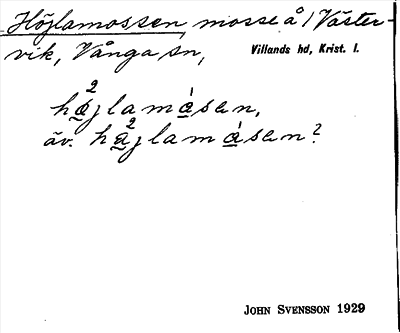 Höjlamossen, mosse å 1 Väster-
vik, Vånga sn, Villands hd, Krist. l.
håjlamåsen,
äv. håjlamåsen?
JOHN SVENSSON 1929